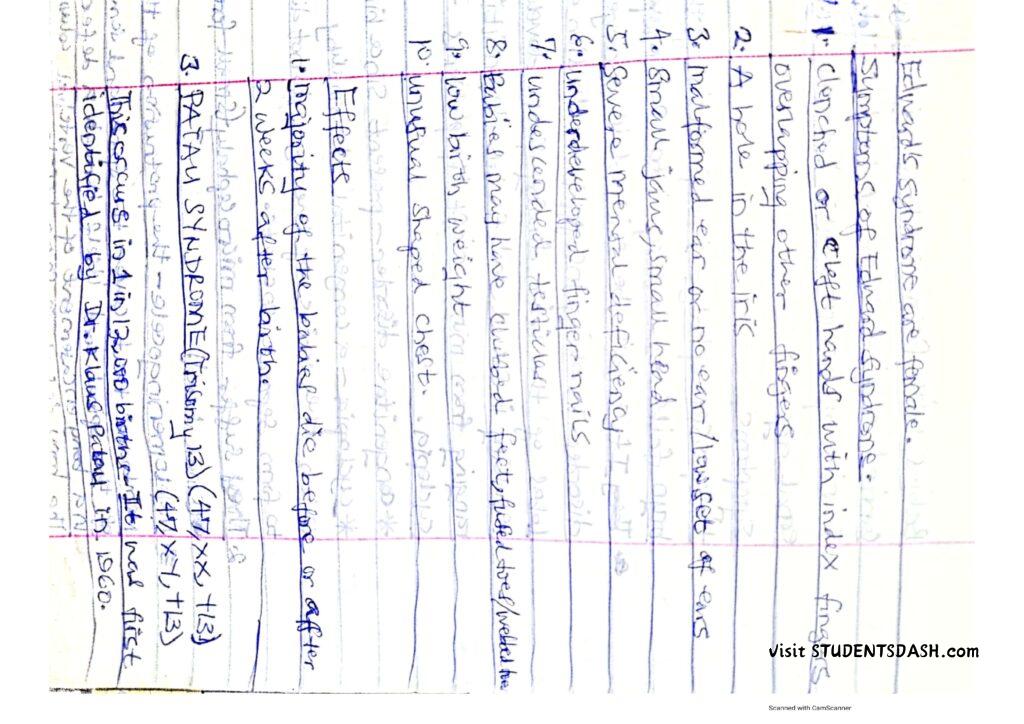 Edward's syndrome are female.
Symptoms of Edward syndrome.
1. Clenched or cleft hands with index fingers
overlapping other fingers
2. A hole in the iris
3. malformed ear or no ear/low set of ears
4. Small jaws, small head
5. Severe mental deficiency
6. Underdeveloped finger nails
7. Undescended testicles
8. Babies may have clubbed feet, fused toes/webbed toe
9. Low birth weight
10. unusual shaped chest.
Effects
1. majority of the babies die before or after
2 weeks after birth.
3. PATAU SYNDROME (Trisomy 13) (47, XX, +13)
(47, XY, +13)
This occurs in 1 in 12000 births. It was first
identified by Dr. Klaus Patau in 1960.
visit STUDENTSDASH.com
Scanned with CamScanner